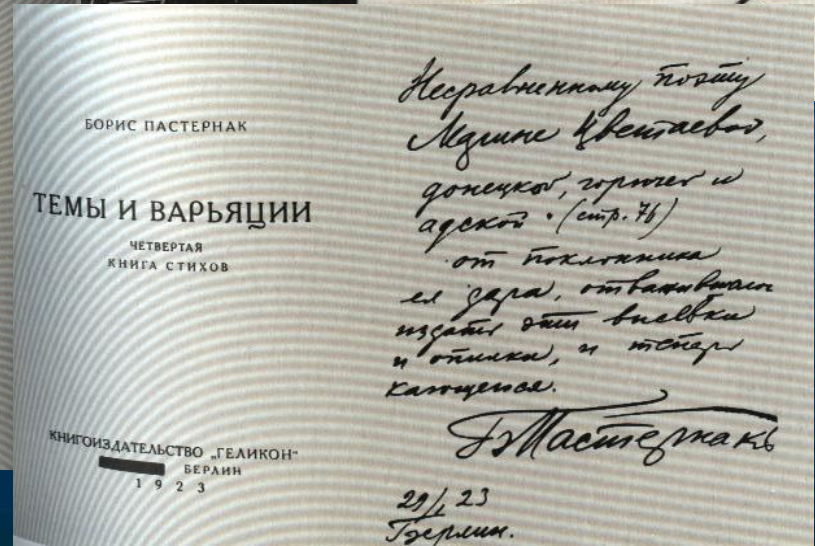 БОРИС ПАСТЕРНАК
ТЕМЫ И ВАРЬЯЦИИ
ЧЕТВЕРТАЯ
КНИГА СТИХОВ
КНИГОИЗДАТЕЛЬСТВО „ГЕЛИКОН“
БЕРЛИН
1923
Несравненному поэту
Марине Цветаевой,
донецкой, горючей и
адской • (стр. 76)
от поклонника
ея дара, отважившагося
издать эти высевки
и опилки, и теперь
кающегося.
Б Пастернакъ
29/I 23
Берлин.